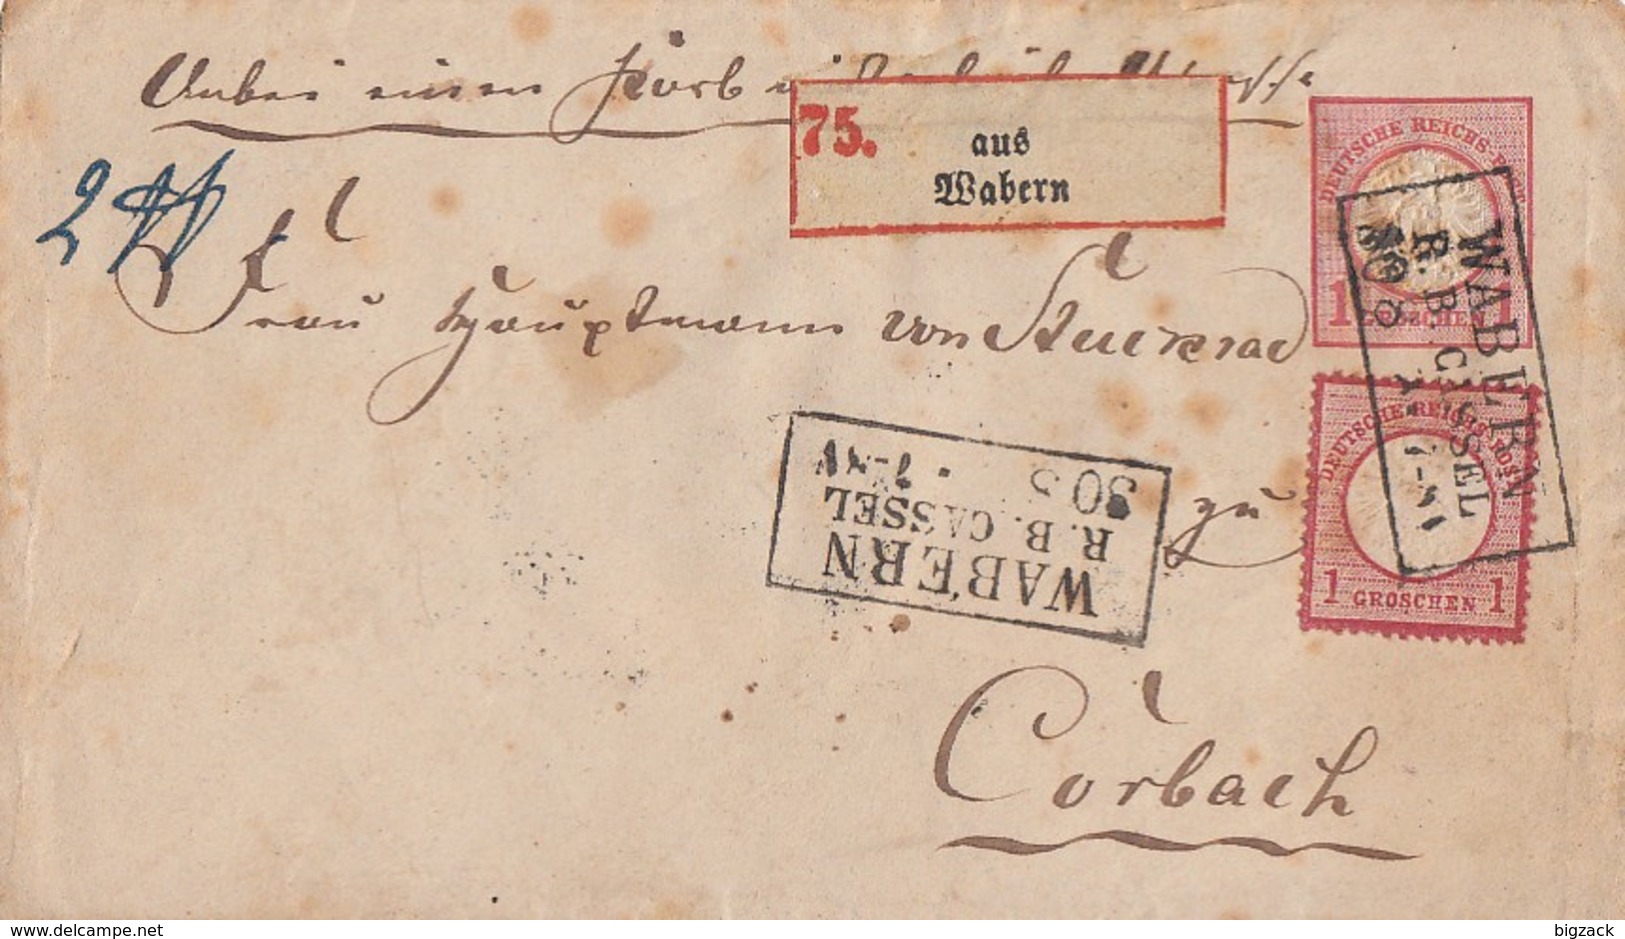 Anbei einen Korb
75.
aus
Wabern
2
Frau Hauptmann von
zu
Corbach
DEUTSCHE REICHS-P
1 GROSCHEN 1
WABERN
R. B. CASSEL
30 5
DEUTSCHE REICHS-POST
1 GROSCHEN 1
WABERN
R. B. CASSEL
30 5 • 7-8N
delcampe.net
bigzack